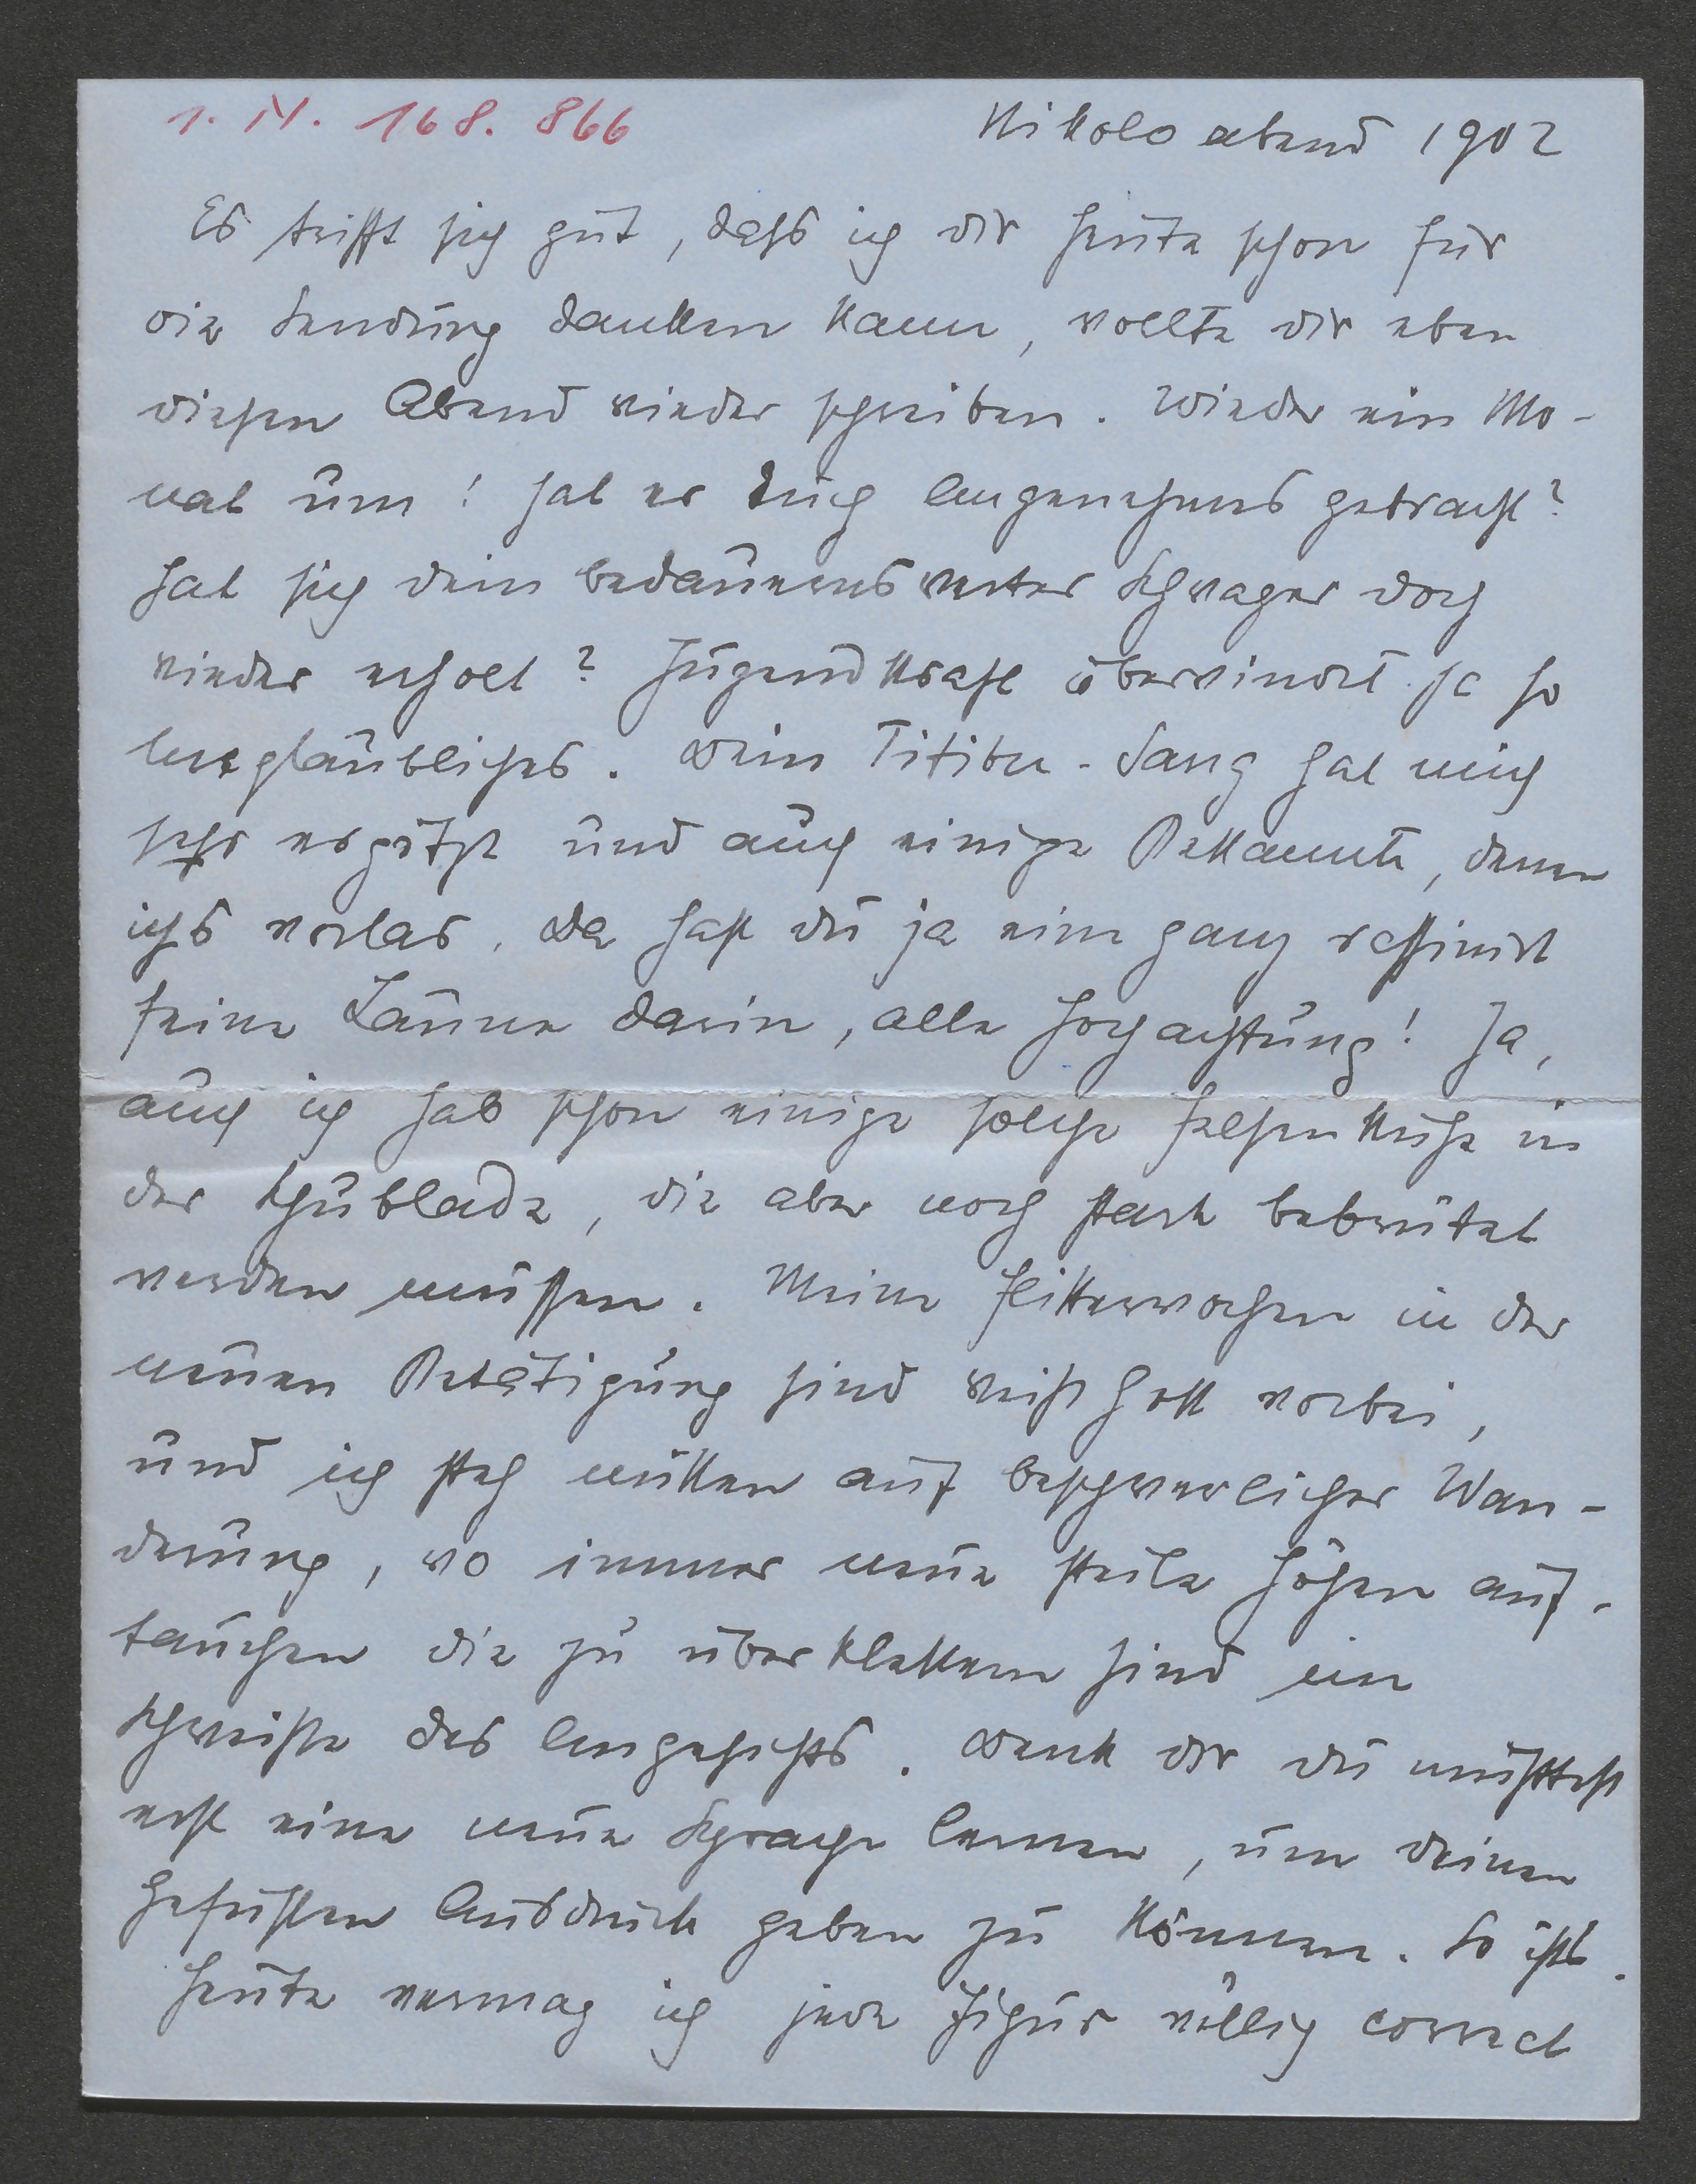 1. N. 168. 866
Nikolo abend 1902
Es trifft sich gut, dass ich dir heute schon für
die Sendung danken kann, wollte dir eben
diesen Abend wieder schreiben. Wieder ein Mo-
nat um! Hat er Euch Angenehmes gebracht?
Hat sich dein bedauernswerter Schwager doch
wieder erholt? Jugendkraft überwindet ja so
Unglaubliches. Dein Titibu-Sang hat mich
sehr ergötzt und auch einige Bekannte, denen
ichs vorlas. Da hast du ja eine ganz raffinirt
feine Laune darin, alle Hochachtung! Ja,
auch ich hab schon einige solche in
der Schublade, die aber noch stark bebrütet
werden müssen. Meine Flitterwochen in der
neuen Betätigung sind weiss Gott vorbei,
und ich steh mitten auf beschwerlicher Wan-
derung, wo immer neue steile Höhen auf-
tauchen die zu überklettern sind im
Schweisse des Angesichts. Denk dir du müsstest
erst eine neue Sprache lernen, um deinen
Gefühlen Ausdruck geben zu können. So ists.
Heute vermag ich jede Figur völlig correct